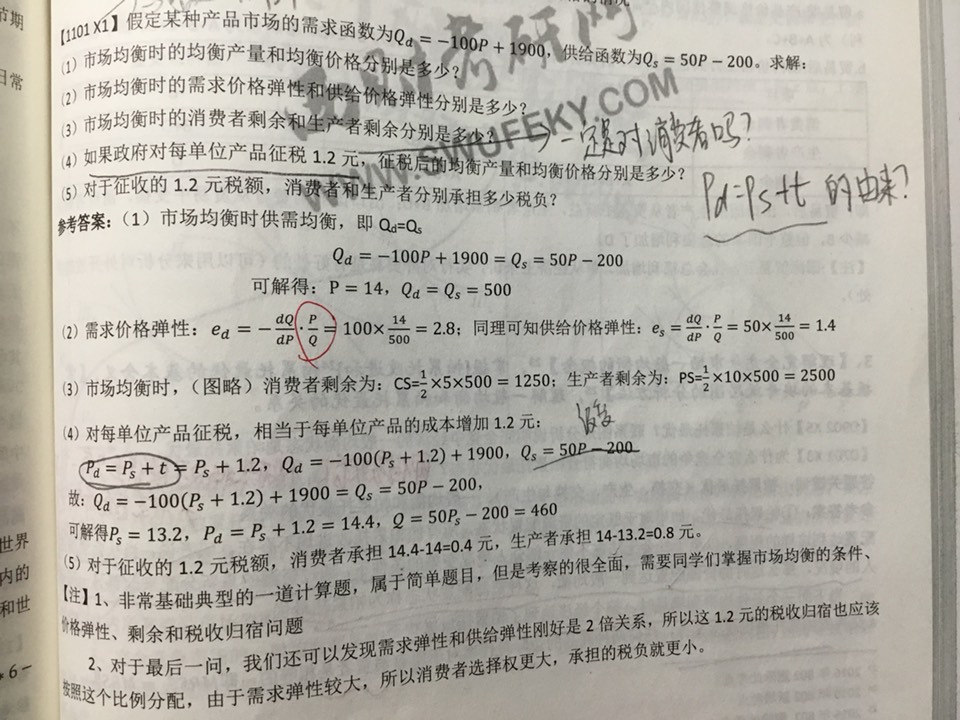 【1101 X1】假定某种产品市场的需求函数为Qd = −100P + 1900，供给函数为Qs = 50P − 200。求解：
(1) 市场均衡时的均衡产量和均衡价格分别是多少？
(2) 市场均衡时的需求价格弹性和供给价格弹性分别是多少？
(3) 市场均衡时的消费者剩余和生产者剩余分别是多少？
一定是对消费者吗？
(4) 如果政府对每单位产品征税 1.2 元，征税后的均衡产量和均衡价格分别是多少？
(5) 对于征收的 1.2 元税额，消费者和生产者分别承担多少税负？
Pd=Ps+t 的由来？
参考答案：（1）市场均衡时供需均衡，即 Qd=Qs
Qd = −100P + 1900 = Qs = 50P − 200
可解得：P = 14，Qd = Qs = 500
（2）需求价格弹性：ed = −dQ/dP·P/Q = 100×14/500 = 2.8；同理可知供给价格弹性：es = dQ/dP·P/Q = 50×14/500 = 1.4
（3）市场均衡时，（图略）消费者剩余为：CS=1/2×5×500 = 1250；生产者剩余为：PS=1/2×10×500 = 2500
（4）对每单位产品征税，相当于每单位产品的成本增加 1.2 元：
Pd = Ps + t = Ps + 1.2，Qd = −100(Ps + 1.2) + 1900，Qs = 50P − 200
故：Qd = −100(Ps + 1.2) + 1900 = Qs = 50P − 200，
可解得Ps = 13.2，Pd = Ps + 1.2 = 14.4，Q = 50Ps − 200 = 460
（5）对于征收的 1.2 元税额，消费者承担 14.4-14=0.4 元，生产者承担 14-13.2=0.8 元。
【注】1、非常基础典型的一道计算题，属于简单题目，但是考察的很全面，需要同学们掌握市场均衡的条件、
价格弹性、剩余和税收归宿问题
2、对于最后一问，我们还可以发现需求弹性和供给弹性刚好是 2 倍关系，所以这 1.2 元的税收归宿也应该
按照这个比例分配，由于需求弹性较大，所以消费者选择权更大，承担的税负就更小。
WWW.SWUFEKY.COM
节期
日常
世界
内的
和世
6